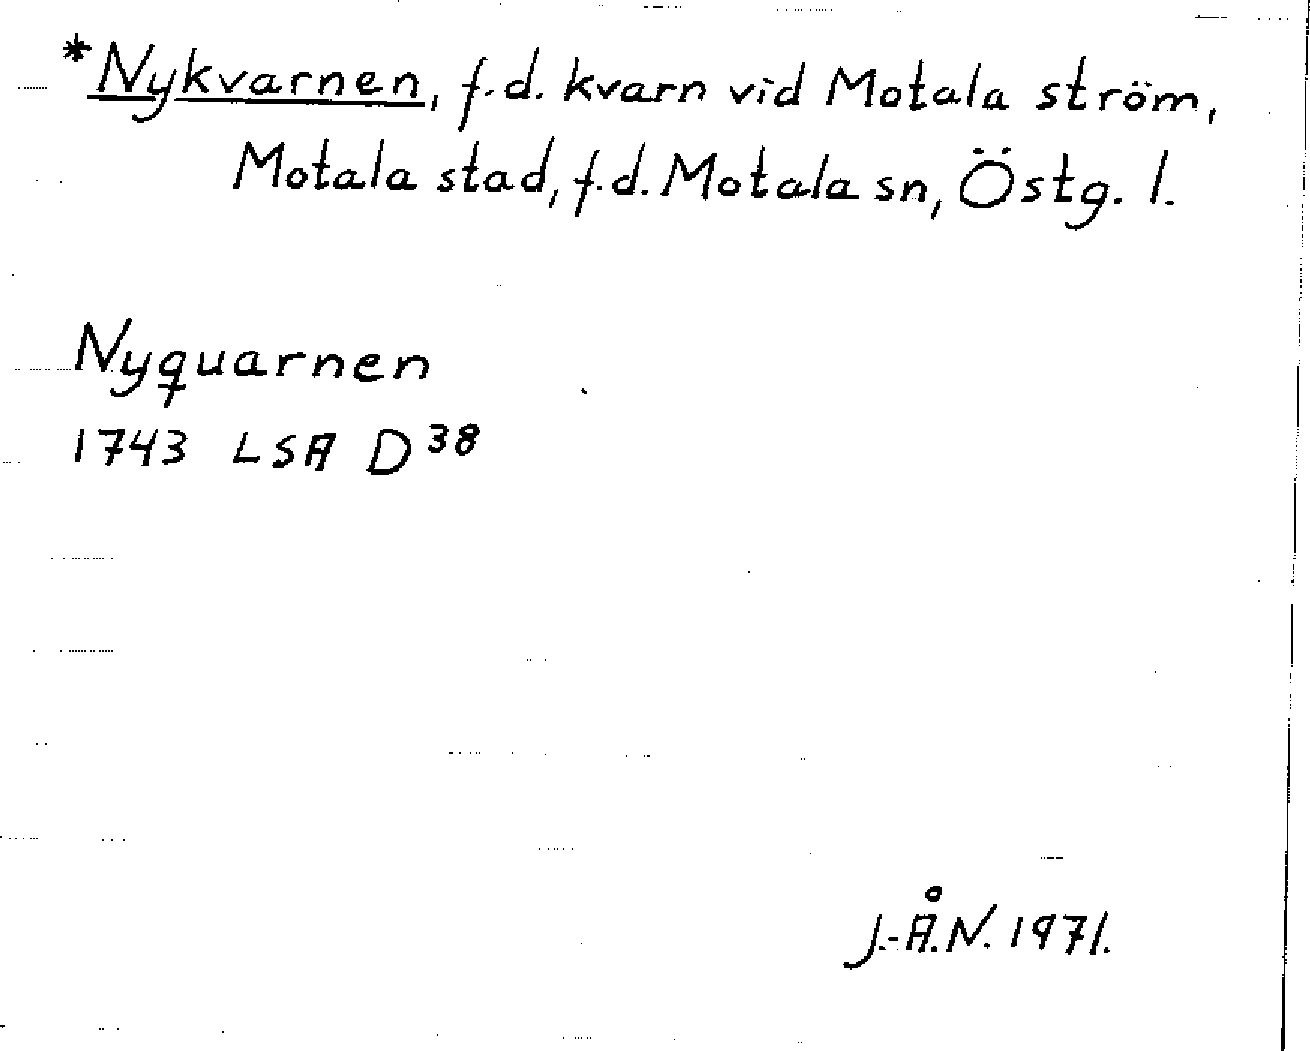 *Nykvarnen, f.d. kvarn vid Motala ström,
Motala stad, f.d. Motala sn, Östg. l.
Nyquarnen
1743 LSA D³⁸
J.-Å.N. 1971.